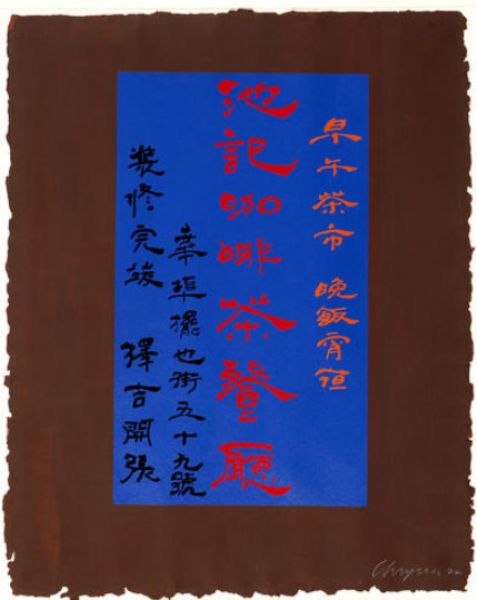 早午茶市 晚飯宵
池記咖啡茶餐廳
華埠擺也街五十九號
裝修完竣 擇吉開張
Chryssa